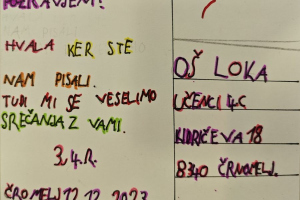 POZDRAVLJENI!
HVALA KER STE
NAM PISALI.
TUDI MI SE VESELIMO
SREČANJA Z VAMI.
3.4.R.
ČRNOMELJ 12.12.2023
OŠ LOKA
UČENCI 4.C
KIDRIČEVA 18
8340 ČRNOMELJ.